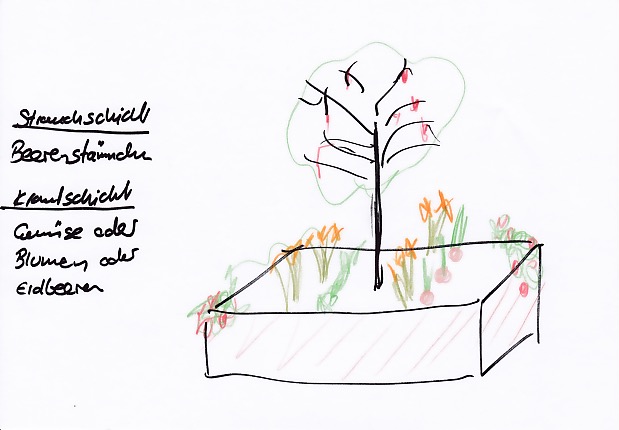 Strauchschicht
Beerenstämmchen
Krautschicht
Gemüse oder
Blumen oder
Erdbeeren